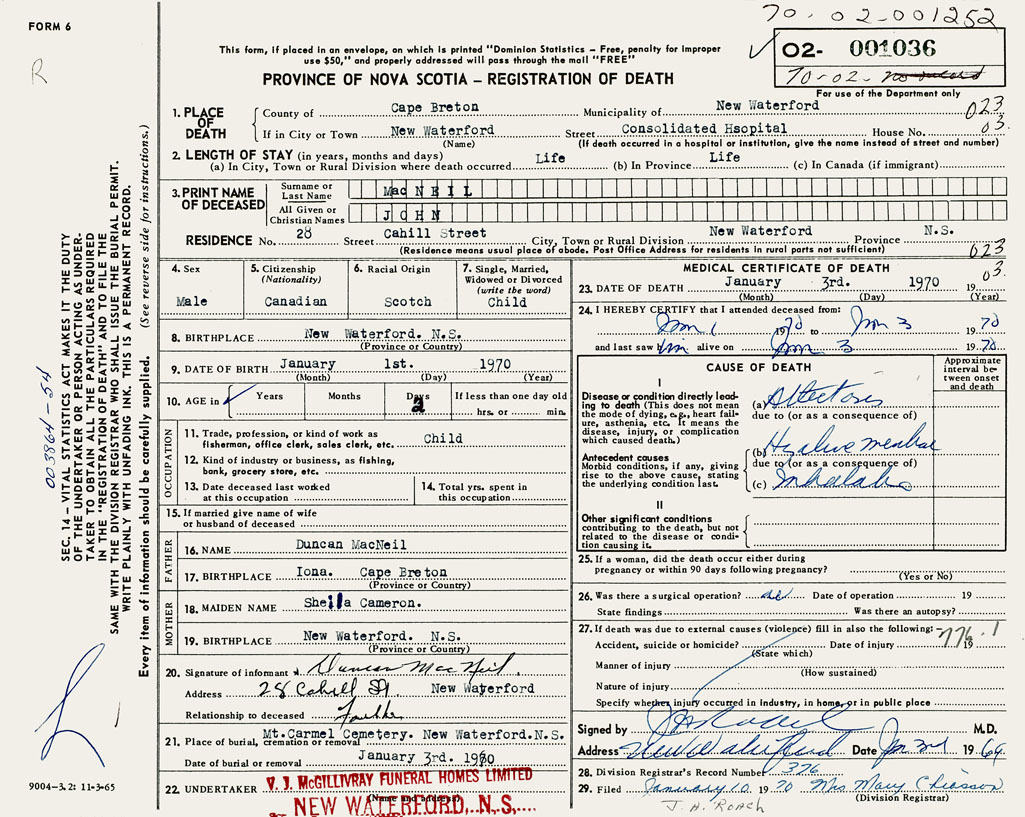 FORM 6
R
70-02-001252
This form, if placed in an envelope, on which is printed "Dominion Statistics – Free, penalty for improper
use $50," and properly addressed will pass through the mail "FREE"
02- 001036
70-02- no record
For use of the Department only
PROVINCE OF NOVA SCOTIA – REGISTRATION OF DEATH
1. PLACE OF DEATH
County of Cape Breton Municipality of New Waterford 023
If in City or Town New Waterford Street Consolidated Hsopital House No. 03.
(Name) (If death occurred in a hospital or institution, give the name instead of street and number)
2. LENGTH OF STAY (in years, months and days)
(a) In City, Town or Rural Division where death occurred Life (b) In Province Life (c) In Canada (if immigrant)
3. PRINT NAME OF DECEASED
Surname or Last Name MacNEIL
All Given or Christian Names JOHN
RESIDENCE No. 28 Street Cahill Street City, Town or Rural Division New Waterford Province N.S.
(Residence means usual place of abode. Post Office Address for residents in rural parts not sufficient) 023
03.
4. Sex
Male
5. Citizenship (Nationality)
Canadian
6. Racial Origin
Scotch
7. Single, Married, Widowed or Divorced (write the word)
Child
8. BIRTHPLACE New Waterford. N.S.
(Province or Country)
9. DATE OF BIRTH January 1st. 1970
(Month) (Day) (Year)
10. AGE in Years Months Days If less than one day old
2 hrs. or min.
OCCUPATION
11. Trade, profession, or kind of work as
fisherman, office clerk, sales clerk, etc. Child
12. Kind of industry or business, as fishing,
bank, grocery store, etc.
13. Date deceased last worked
at this occupation
14. Total yrs. spent in
this occupation
15. If married give name of wife
or husband of deceased
FATHER
16. NAME Duncan MacNeil
17. BIRTHPLACE Iona. Cape Breton
(Province or Country)
MOTHER
18. MAIDEN NAME Sheila Cameron.
19. BIRTHPLACE New Waterford. N.S.
(Province or Country)
20. Signature of informant Duncan MacNeil
Address 28 Cahill St New Waterford
Relationship to deceased Father
21. Place of burial, cremation or removal Mt.Carmel Cemetery. New Waterford.N.S.
Date of burial or removal January 3rd. 1970
22. UNDERTAKER V. J. McGILLIVRAY FUNERAL HOMES LIMITED
(Name and address)
NEW WATERFORD, N.S.
MEDICAL CERTIFICATE OF DEATH
23. DATE OF DEATH January 3rd. 1970 19
(Month) (Day) (Year)
24. I HEREBY CERTIFY that I attended deceased from:
Jan 1 1970 to Jan 3 1970
and last saw him alive on Jan 3 1970.
CAUSE OF DEATH
Approximate interval between onset and death
I
Disease or condition directly leading to death (This does not mean the mode of dying, e.g., heart failure, asthenia, etc. It means the disease, injury, or complication which caused death.)
(a) Atelectasis
due to (or as a consequence of)
Antecedent causes
Morbid conditions, if any, giving rise to the above cause, stating the underlying condition last.
(b) Hyaline membrane
due to (or as a consequence of)
(c)
II
Other significant conditions
contributing to the death, but not related to the disease or condition causing it.
25. If a woman, did the death occur either during
pregnancy or within 90 days following pregnancy?
(Yes or No)
26. Was there a surgical operation? no Date of operation 19
State findings Was there an autopsy?
27. If death was due to external causes (violence) fill in also the following: 776.1
Accident, suicide or homicide? Date of injury 19
(State which)
Manner of injury
(How sustained)
Nature of injury
Specify whether injury occurred in industry, in home, or in public place
Signed by JARoach M.D.
Address New Waterford Date Jan 3rd 1964
28. Division Registrar's Record Number 376
29. Filed January 10. 1970 Mrs Mary Chiasson
(Division Registrar)
J. A. ROACH
003864-54
SEC. 14 – VITAL STATISTICS ACT MAKES IT THE DUTY
OF THE UNDERTAKER OR PERSON ACTING AS UNDER-
TAKER TO OBTAIN ALL THE PARTICULARS REQUIRED
IN THE "REGISTRATION OF DEATH" AND TO FILE THE
SAME WITH THE DIVISION REGISTRAR WHO SHALL ISSUE THE BURIAL PERMIT.
WRITE PLAINLY WITH UNFADING INK. THIS IS A PERMANENT RECORD.
Every item of information should be carefully supplied. (See reverse side for instructions.)
9004-3.2: 11-3-65